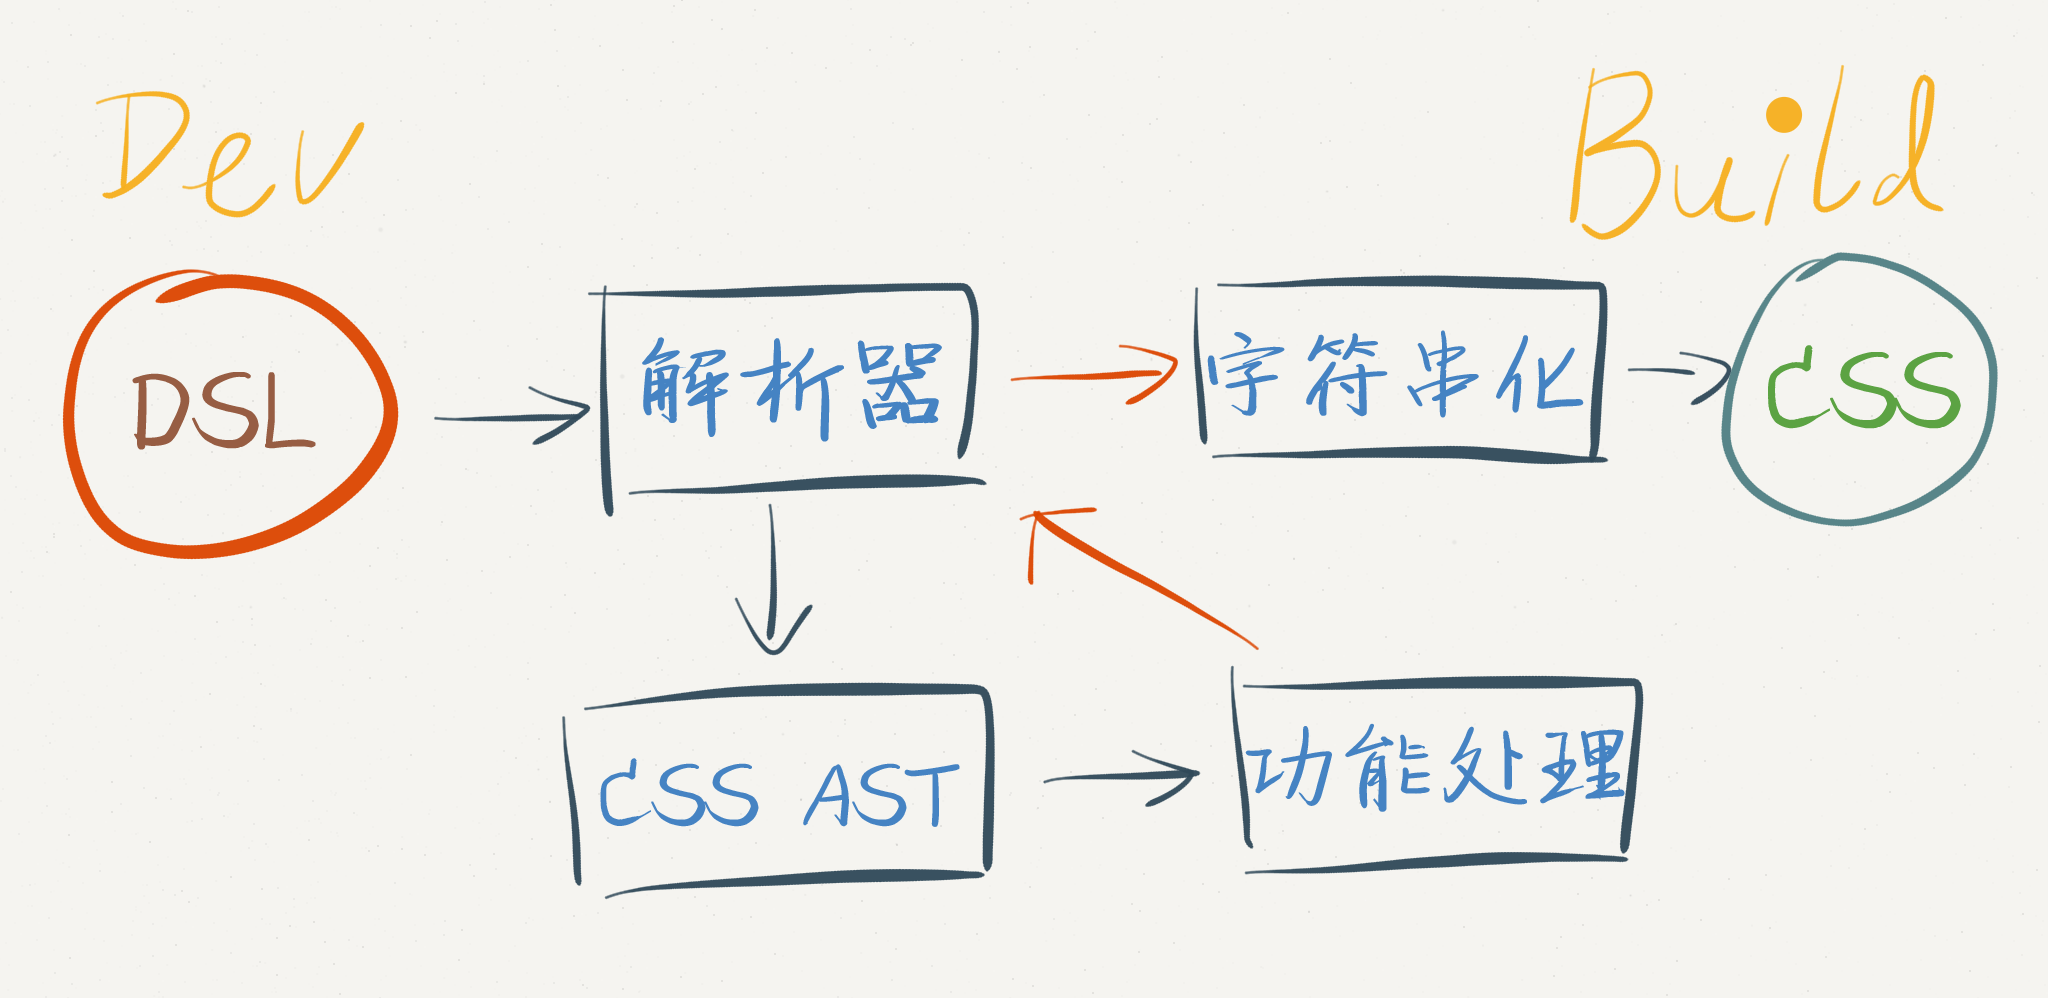 Dev
Build
DSL
解析器
字符串化
CSS
CSS AST
功能处理